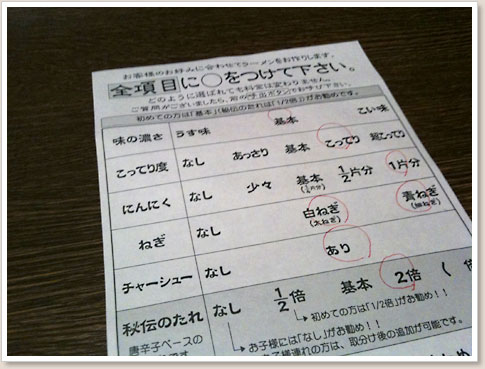 お客様のお好みに合わせてラーメンをお作りします。
全項目に○をつけて下さい。
どのように選ばれても料金は変わりません。
ご質問がございましたら、前の呼出ボタンでお呼び下さい。
初めての方は「基本」、秘伝のたれは「1/2倍」がお勧めです。
味の濃さ うす味 基本 こい味
こってり度 なし あっさり 基本 こってり 超こってり
にんにく なし 少々 基本 1/2片分 1片分
(1/4片分)
ねぎ なし 白ねぎ 青ねぎ
(太ねぎ) (細ねぎ)
チャーシュー なし あり
秘伝のたれ なし 1/2倍 基本 2倍 (
初めての方は「1/2倍」がお勧め!!
唐辛子ベースの
お子様には「なし」がお勧め!!
お子様連れの方は、取分け後の追加が可能です。